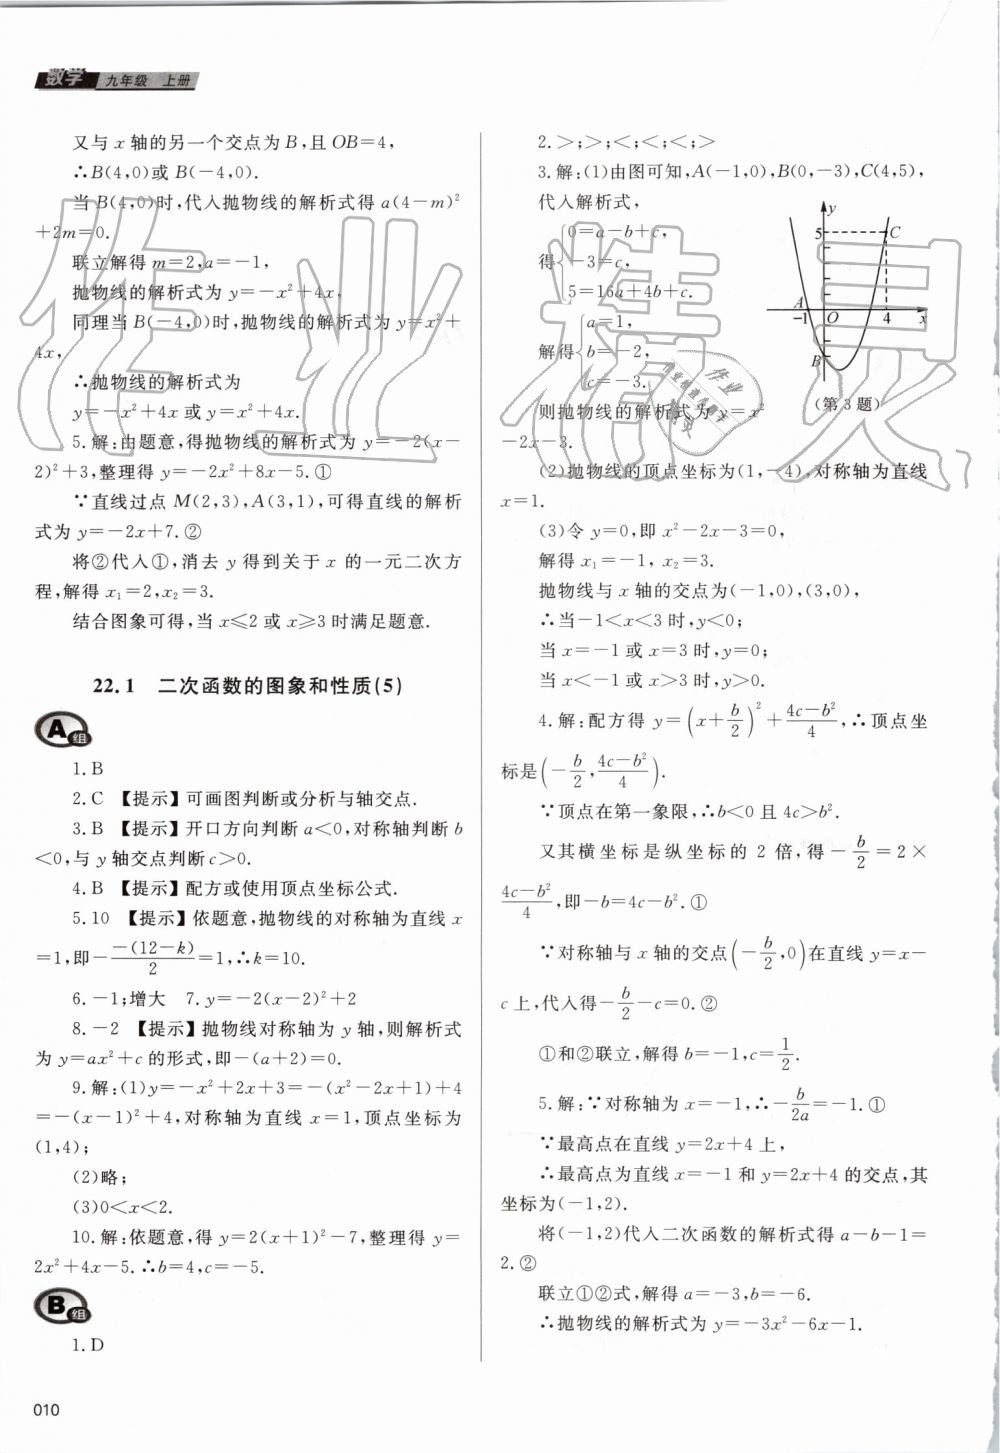 数学 九年级 上册
又与 x 轴的另一个交点为 B,且 OB=4,
∴B(4,0)或 B(-4,0).
当 B(4,0)时,代入抛物线的解析式得 a(4-m)²
+2m=0.
联立解得 m=2,a=-1,
抛物线的解析式为 y=-x²+4x,
同理当 B(-4,0)时,抛物线的解析式为 y=x²+
4x,
∴抛物线的解析式为
y=-x²+4x 或 y=x²+4x.
5.解:由题意,得抛物线的解析式为 y=-2(x-
2)²+3,整理得 y=-2x²+8x-5.①
∵直线过点 M(2,3),A(3,1),可得直线的解析
式为 y=-2x+7.②
将②代入①,消去 y 得到关于 x 的一元二次方
程,解得 x₁=2,x₂=3.
结合图象可得,当 x≤2 或 x≥3 时满足题意.
22.1 二次函数的图象和性质(5)
A组
1.B
2.C 【提示】可画图判断或分析与轴交点.
3.B 【提示】开口方向判断 a<0,对称轴判断 b
<0,与 y 轴交点判断 c>0.
4.B 【提示】配方或使用顶点坐标公式.
5.10 【提示】依题意,抛物线的对称轴为直线 x
=1,即-\frac{-(12-k)}{2}=1,∴k=10.
6.-1;增大 7.y=-2(x-2)²+2
8.-2 【提示】抛物线对称轴为 y 轴,则解析式
为 y=ax²+c 的形式,即-(a+2)=0.
9.解:(1)y=-x²+2x+3=-(x²-2x+1)+4
=-(x-1)²+4,对称轴为直线 x=1,顶点坐标为
(1,4);
(2)略;
(3)0<x<2.
10.解:依题意,得 y=2(x+1)²-7,整理得 y=
2x²+4x-5.∴b=4,c=-5.
B组
1.D
010
2.>;>;<;<;<;>
3.解:(1)由图可知,A(-1,0),B(0,-3),C(4,5),
代入解析式,
得{0=a-b+c,
-3=c,
5=16a+4b+c.
解得{a=1,
b=-2,
c=-3.
y
5
C
A
-1
O
4
x
B
(第3题)
则抛物线的解析式为 y=x²
-2x-3.
(2)抛物线的顶点坐标为(1,-4),对称轴为直线
x=1.
(3)令 y=0,即 x²-2x-3=0,
解得 x₁=-1, x₂=3.
抛物线与 x 轴的交点为(-1,0),(3,0),
∴当-1<x<3 时,y<0;
当 x=-1 或 x=3 时,y=0;
当 x<-1 或 x>3 时,y>0.
4.解:配方得 y=(x+\frac{b}{2})²+\frac{4c-b²}{4},∴顶点坐
标是(-\frac{b}{2},\frac{4c-b²}{4}).
∵顶点在第一象限,∴b<0 且 4c>b².
又其横坐标是纵坐标的 2 倍,得-\frac{b}{2}=2×
\frac{4c-b²}{4},即-b=4c-b².①
∵对称轴与 x 轴的交点(-\frac{b}{2},0)在直线 y=x-
c 上,代入得-\frac{b}{2}-c=0.②
①和②联立,解得 b=-1,c=\frac{1}{2}.
5.解:∵对称轴为 x=-1,∴-\frac{b}{2a}=-1.①
∵最高点在直线 y=2x+4 上,
∴最高点为直线 x=-1 和 y=2x+4 的交点,其
坐标为(-1,2).
将(-1,2)代入二次函数的解析式得 a-b-1=
2.②
联立①②式,解得 a=-3,b=-6.
∴抛物线的解析式为 y=-3x²-6x-1.
作业精灵